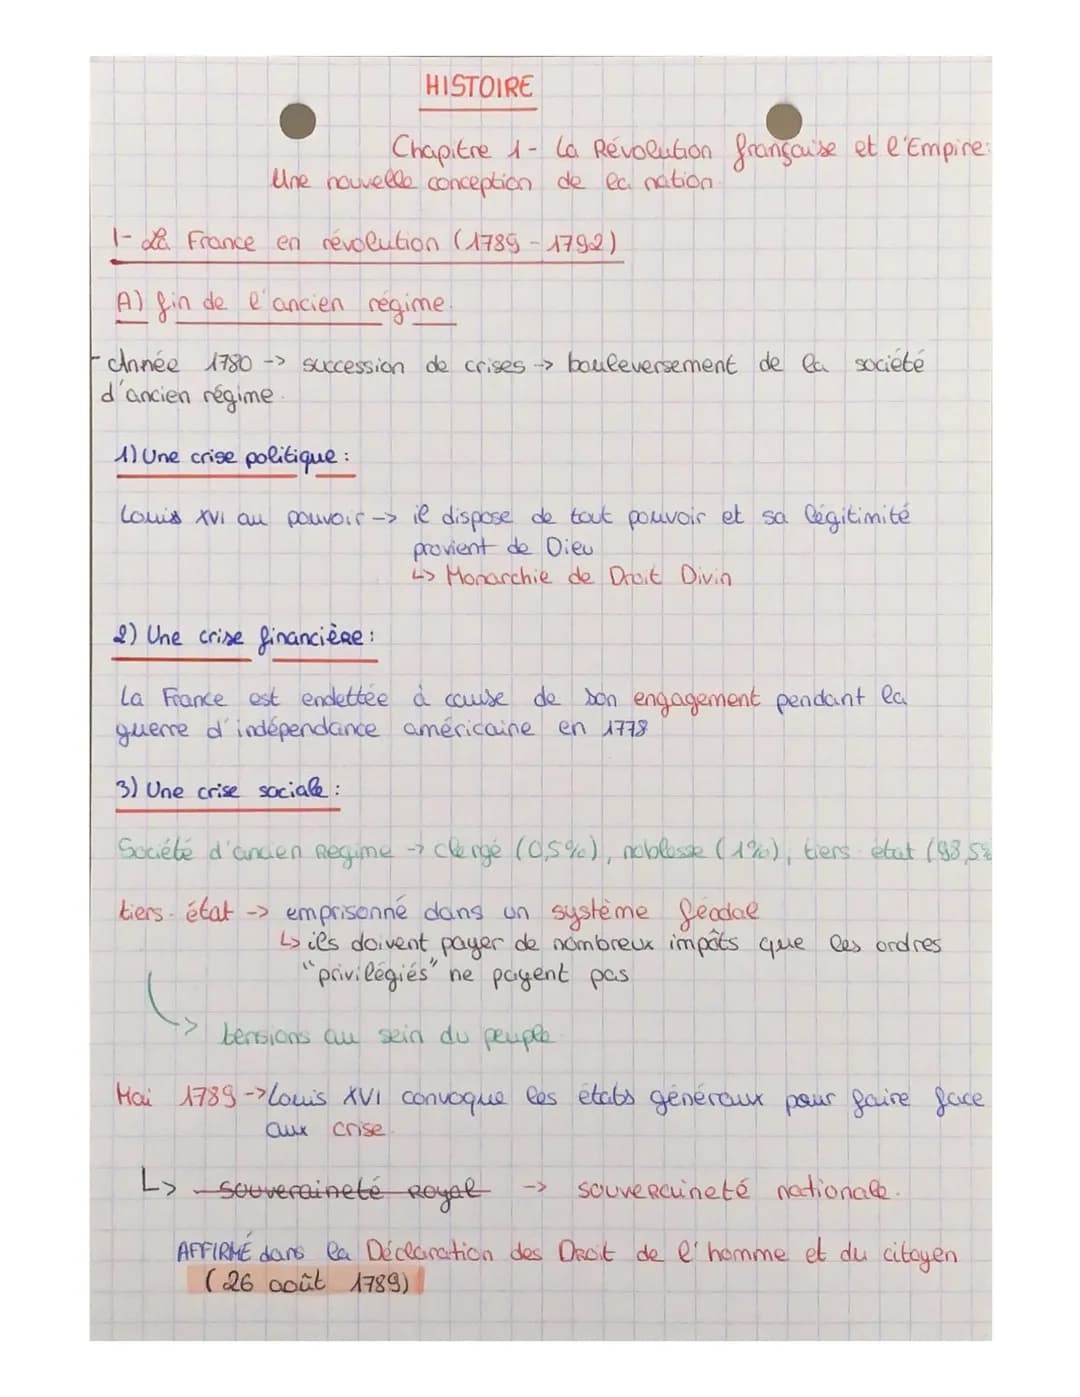 HISTOIRE
Chapitre 1- La Révolution française et l'Empire:
Une nouvelle conception de la nation.
1- La France en révolution (1789-1792)
A) fin de l'ancien régime.
- Année 1780 -> succession de crises -> bouleversement de la société
d'ancien régime.
1) Une crise politique :
Louis XVI au pouvoir -> il dispose de tout pouvoir et sa légitimité
provient de Dieu
↳ Monarchie de Droit Divin
2) Une crise financière :
La France est endettée à cause de son engagement pendant la
guerre d'indépendance américaine en 1778
3) Une crise sociale :
Société d'ancien Régime -> clergé (0,5%), noblesse (1%), tiers-état (98,5%
tiers-état -> emprisonné dans un système féodal
↳ ils doivent payer de nombreux impôts que les ordres
"privilégiés" ne payent pas
-> tensions au sein du peuple.
Mai 1789 -> Louis XVI convoque les états généraux pour faire face
aux crise.
↳ souveraineté Royal -> souveraineté nationale.
AFFIRMÉ dans la Déclaration des Droit de l'homme et du citoyen
(26 août 1789)